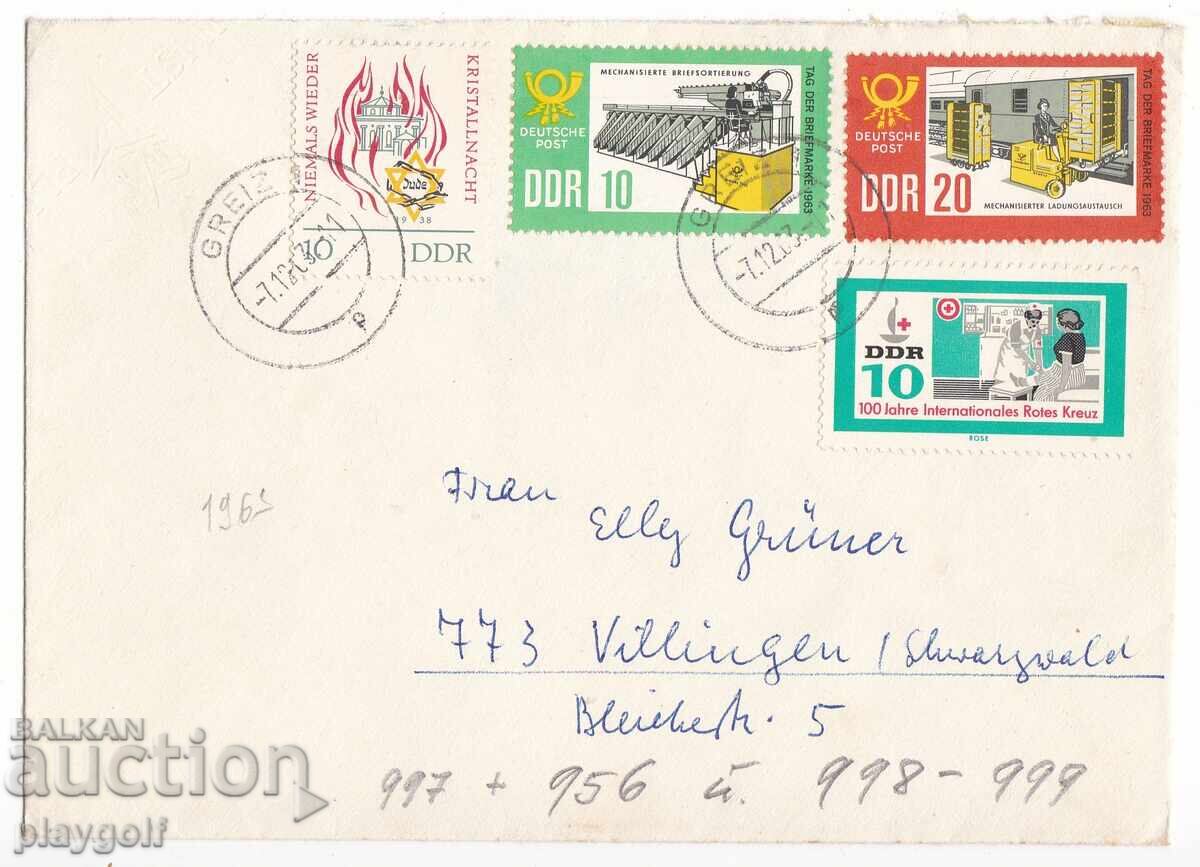 NIEMALS WIEDER
KRISTALLNACHT
Jude
1938
10 DDR
MECHANISIERTE BRIEFSORTIERUNG
DEUTSCHE
POST
DDR 10
TAG DER BRIEFMARKE 1963
DEUTSCHE
POST
DDR 20
MECHANISIERTER LADUNGSAUSTAUSCH
TAG DER BRIEFMARKE 1963
GREIZ
-7.12.63
DDR
10
100 Jahre Internationales Rotes Kreuz
ROSE
1963
Frau
Elly Grüner
773 Villingen / Schwarzwald
Bleichestr. 5
997 + 956 u. 998-999
BALKAN
auction
playgolf